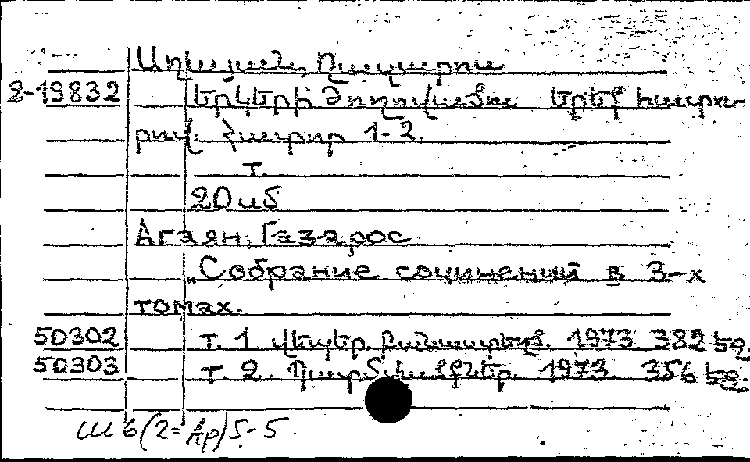 Աղայան, Ղազարոս
8-19832 Երկերի ժողովածու երեք հատո-
րով. Հատոր 1-2.
Т.
20 սմ
Агаян, Газарос
„Собрание сочинений в 3-х
томах.
50302 т. 1. Վեպեր. Բանաստեղծ. 1973 382 էջ.
50303 т. 2. Պատմվածքներ. 1973. 356 էջ.
Ш6(2=Ар)5-5